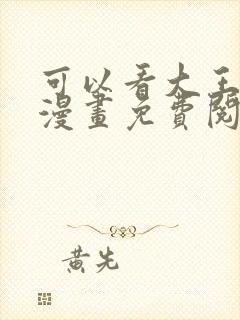 可以看大王
漫畫免費閱
黃先